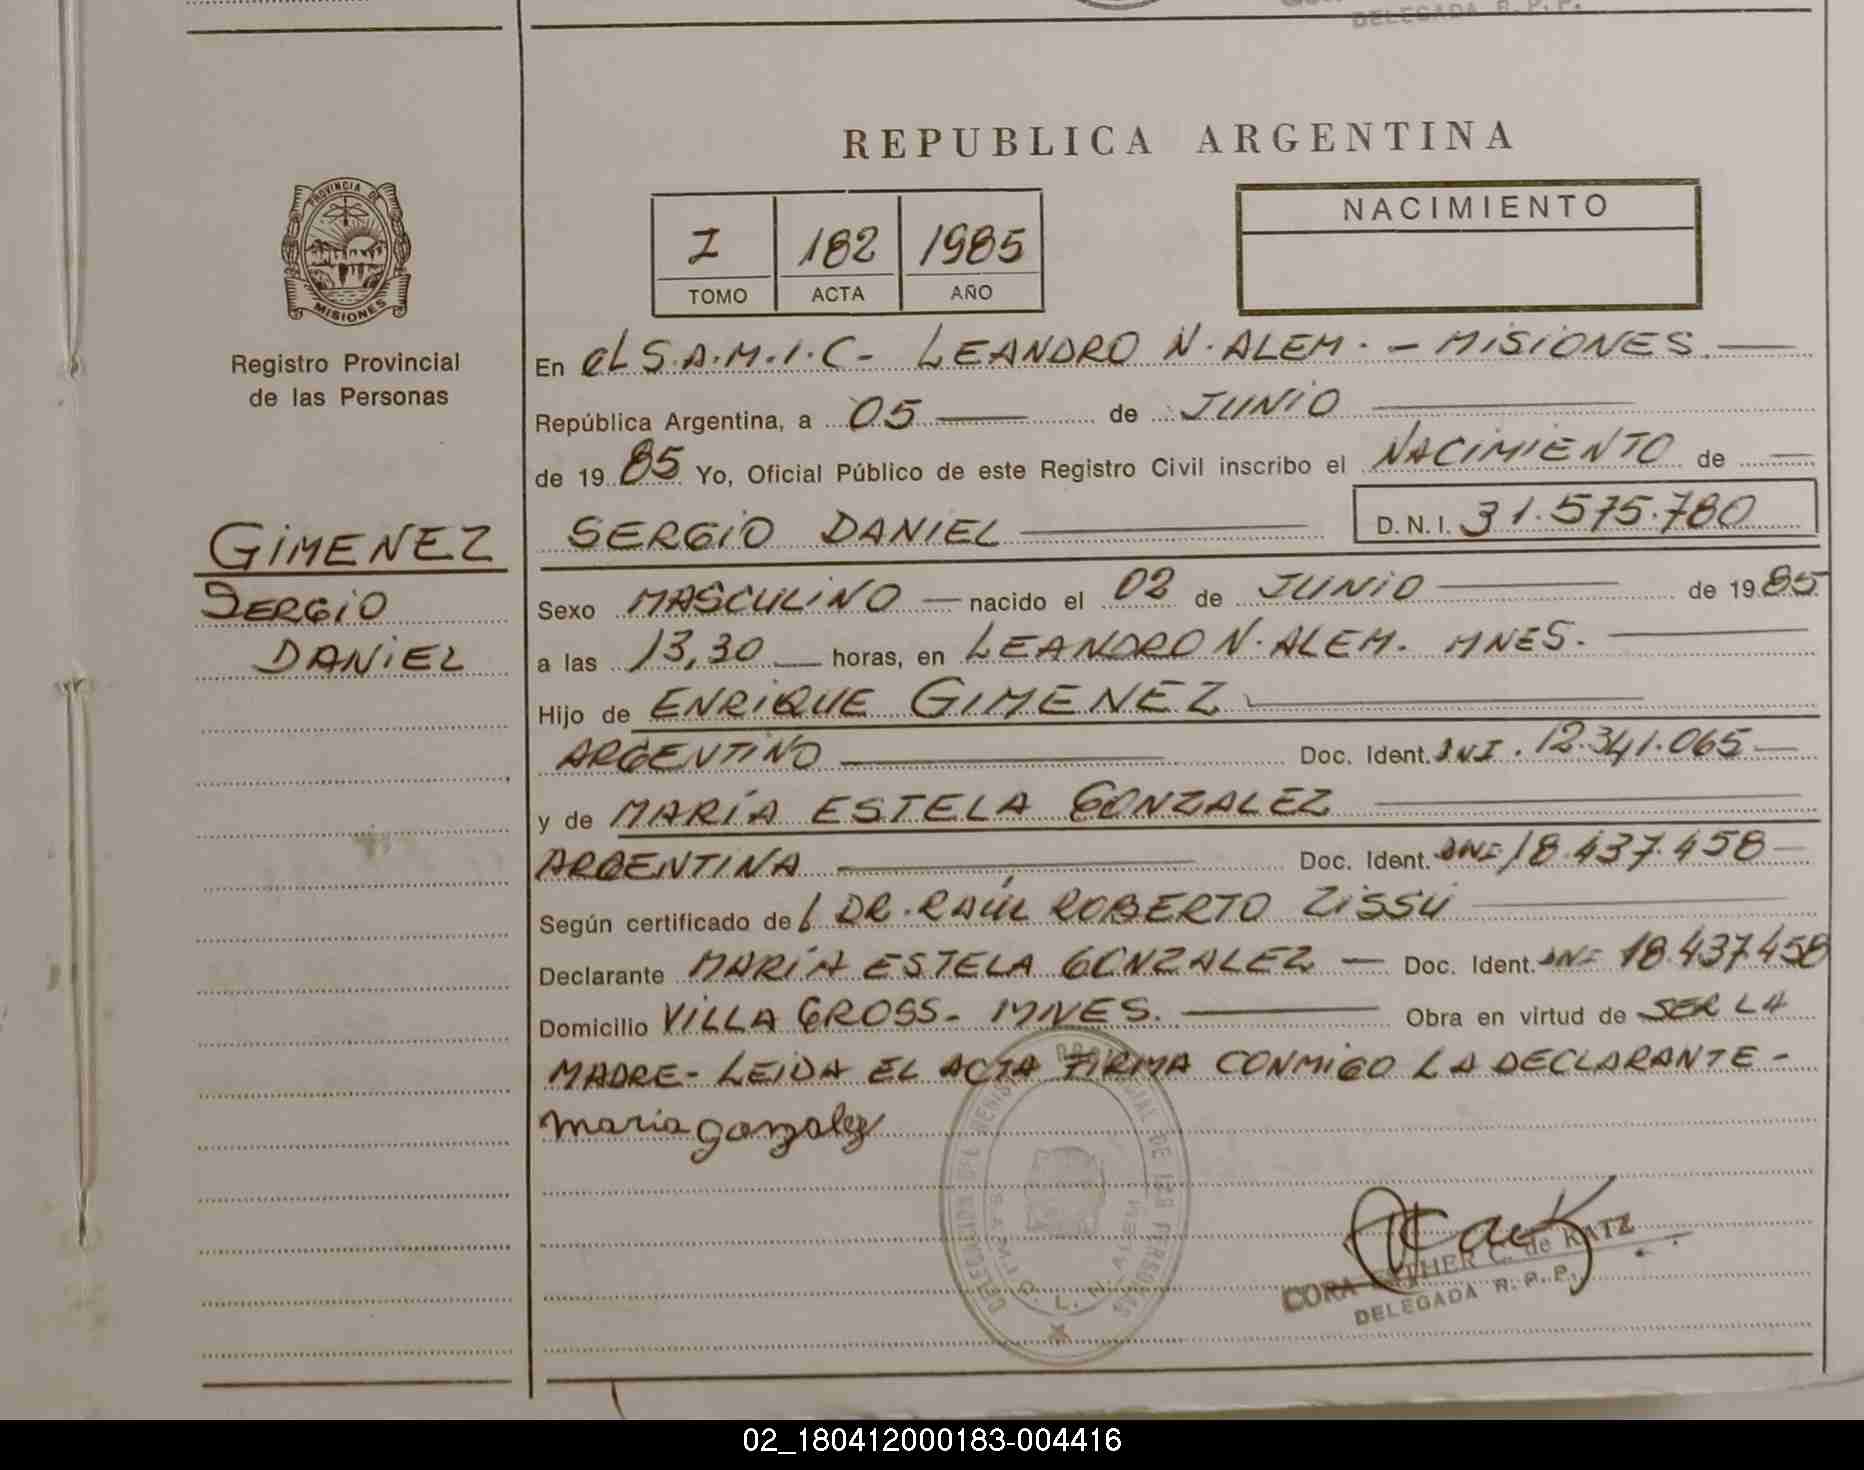 DELEGADA R. P. P.
REPUBLICA ARGENTINA
PROVINCIA DE
MISIONES
Registro Provincial
de las Personas
GIMENEZ
SERGIO
DANIEL
I 182 1985
TOMO ACTA AÑO
NACIMIENTO
En el S.A.M.I.C- LEANDRO N. ALEM. - MISIONES.
República Argentina, a 05 de JUNIO
de 1985 Yo, Oficial Público de este Registro Civil inscribo el NACIMIENTO de
SERGIO DANIEL D.N.I. 31.575.780
Sexo MASCULINO nacido el 02 de JUNIO de 1985
a las 13,30 horas, en LEANDRO N. ALEM. MNES.
Hijo de ENRIQUE GIMENEZ
ARGENTINO Doc. Ident. DNI. 12.341.065
y de MARÍA ESTELA GONZALEZ
ARGENTINA Doc. Ident. DNI 18.437.458
Según certificado del DR. RAÚL ROBERTO ZISSÚ
Declarante MARÍA ESTELA GONZALEZ Doc. Ident. DNI 18.437.458
Domicilio VILLA GROSS- MNES. Obra en virtud de SER LA
MADRE- LEIDA EL ACTA FIRMA CONMIGO LA DECLARANTE-
maria gonzalez
CORA ESTHER C. de KATZ
DELEGADA R. P. P.
02_180412000183-004416